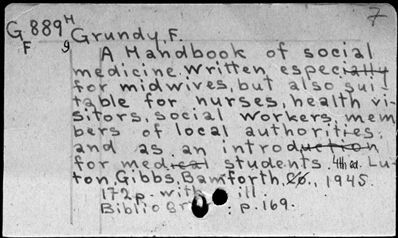 7
G 889 H Grundy, F.
F 9 A Handbook of social
medicine. Written especially
for midwives, but also sui-
table for nurses, health vi-
sitors, social workers, mem
bers of local authorities.
and as an introduction
for medical students. 4th ed. Lu-
ton, Gibbs, Bamforth, Co., 1945.
172 p. with ill.
Biblio : p. 169.